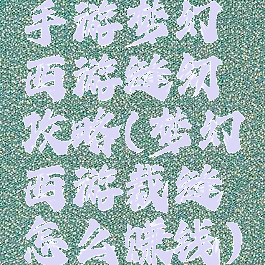 手游梦幻
西游跨切
攻略(梦幻
西游截跨
怎么赚钱)